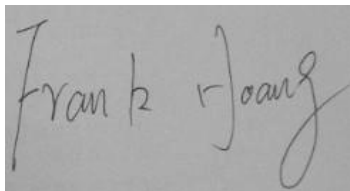 Frank Hoang